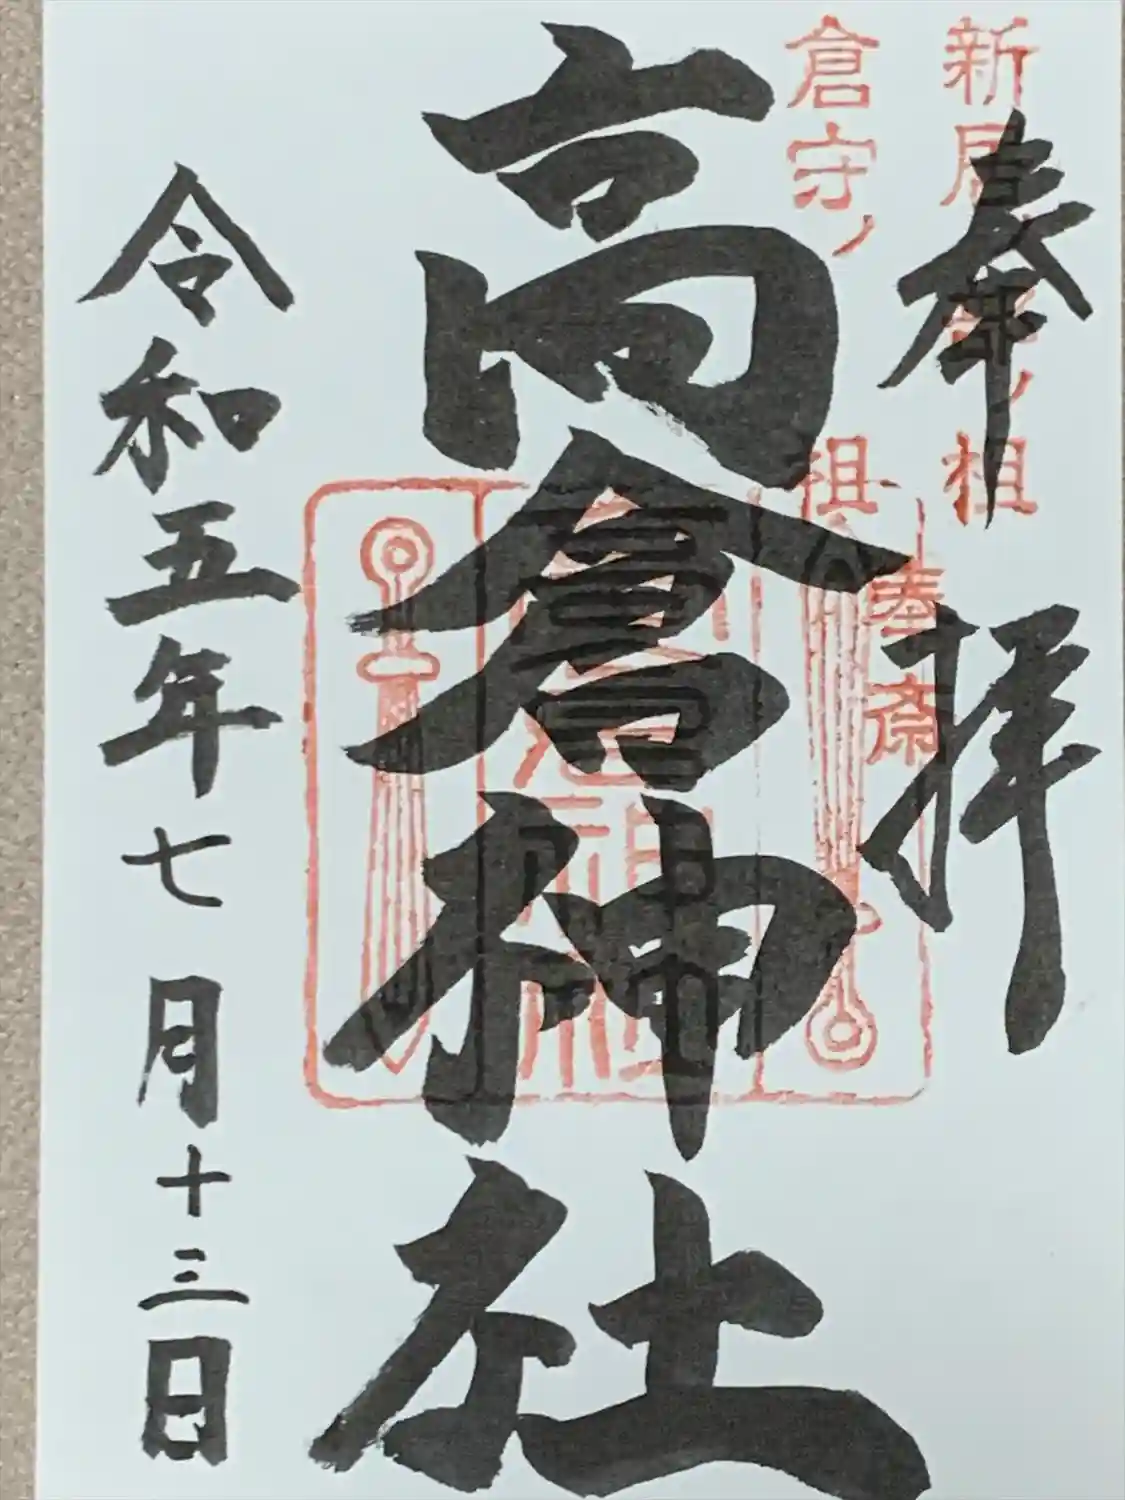 奉拝
新居ノ祖
倉守ノ祖
奉斎
高倉神社
令和五年七月十三日